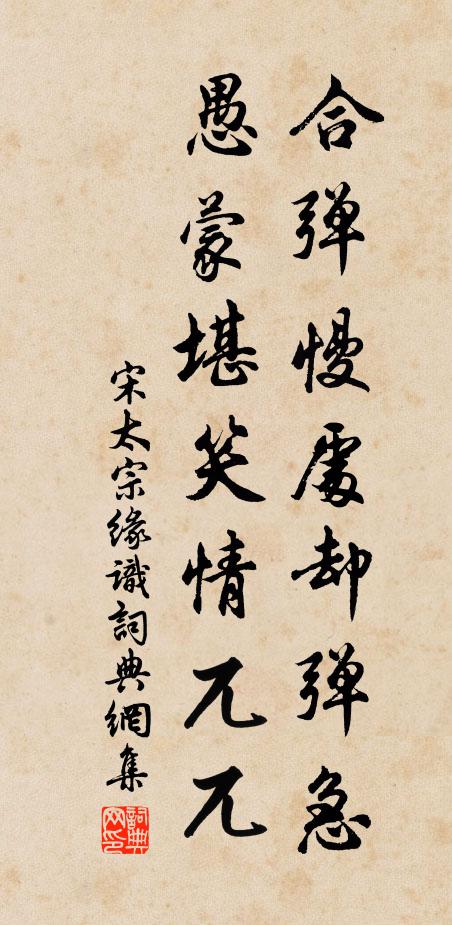 合弹慢處却弹急
愚蒙堪笑情兀兀
宋太宗緣識詞典網集
詞典网印